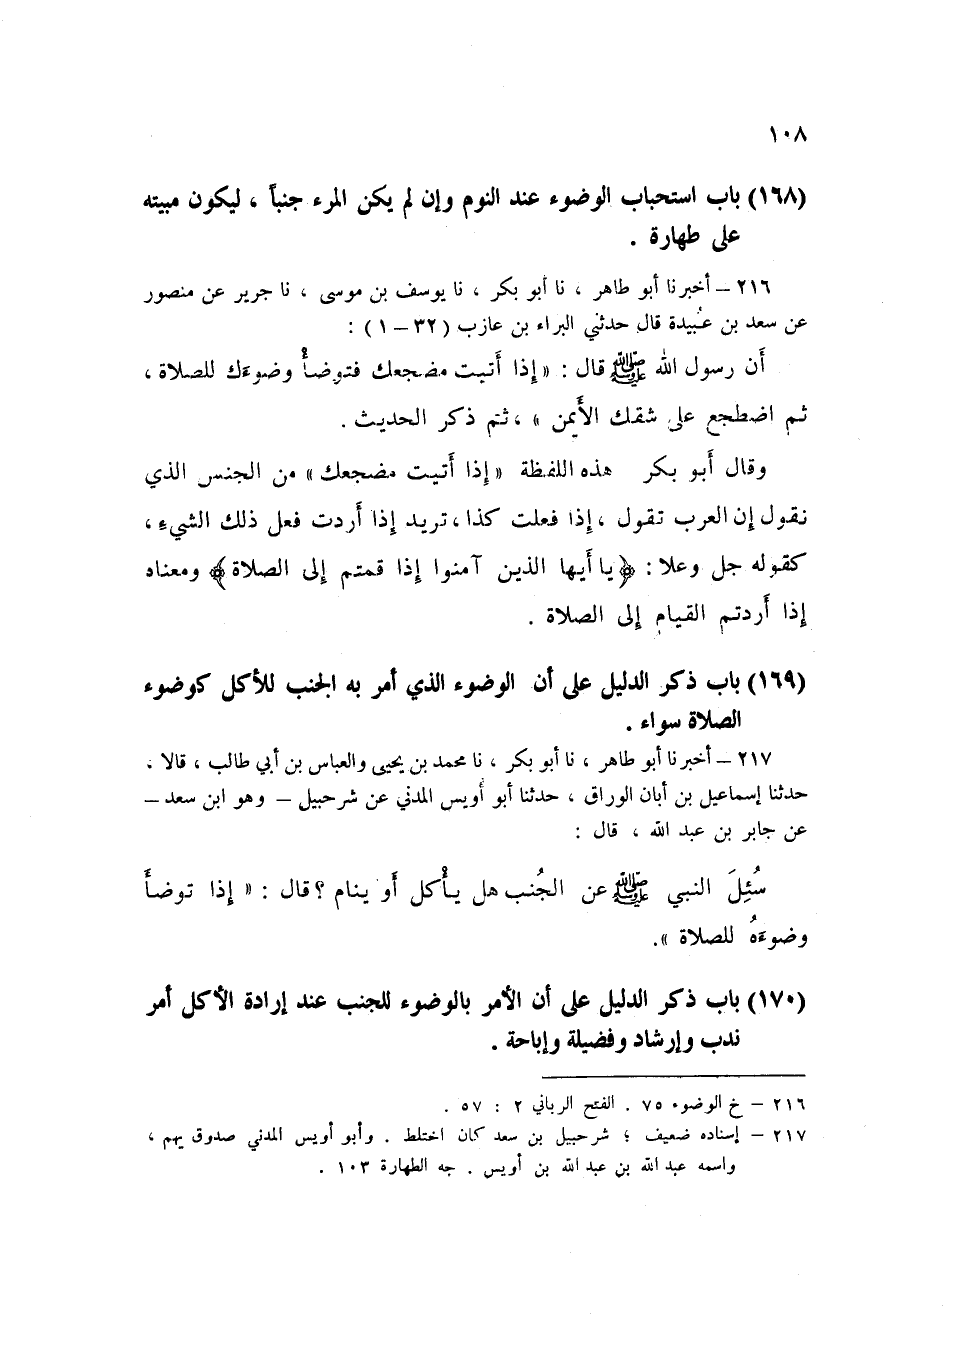 ١٠٨
(١٦٨) باب استحباب الوضوء عند النوم وإن لم يكن المرء جنباً ، ليكون مبيته
على طهارة .
٢١٦ – أخبرنا أبو طاهر ، نا أبو بكر ، نا يوسف بن موسى ، نا جرير عن منصور
عن سعد بن عُبيدة قال حدثني البراء بن عازب (٣٢ – ١) :
أن رسول الله ﷺ قال : « إذا أَتيت مضجعك فتوضأْ وضوءَك للصلاة ،
ثم اضطجع على شقك الأَيمن » ، ثم ذكر الحديث .
وقال أَبو بكر هذه اللفظة « إذا أَتيت مضجعك » من الجنس الذي
نقول إن العرب تقول ، إذا فعلت كذا ، تريد إذا أَردت فعل ذلك الشيء ،
كقوله جل وعلا : ﴿ يا أَيها الذين آمنوا إذا قمتم إلى الصلاة ﴾ ومعناه
إذا أَردتم القيام إلى الصلاة .
(١٦٩) باب ذكر الدليل على أن الوضوء الذي أمر به الجنب للأكل كوضوء
الصلاة سواء .
٢١٧ – أخبرنا أبو طاهر ، نا أبو بكر ، نا محمد بن يحيى والعباس بن أبي طالب ، قالا ،
حدثنا إسماعيل بن أبان الوراق ، حدثنا أبو أُويس المدني عن شرحبيل – وهو ابن سعد –
عن جابر بن عبد الله ، قال :
سُئِلَ النبي ﷺ عن الجُنب هل يأْكل أَو ينام ؟ قال : « إذا توضأَ
وضوءَهُ للصلاة ».
(١٧٠) باب ذكر الدليل على أن الأمر بالوضوء للجنب عند إرادة الأكل أمر
ندب وإرشاد وفضيلة وإباحة .
٢١٦ – خ الوضوء ٧٥ . الفتح الرباني ٢ : ٥٧ .
٢١٧ – إسناده ضعيف ؛ شرحبيل بن سعد كان اختلط . وأبو أويس المدني صدوق يهم ،
واسمه عبد الله بن عبد الله بن أويس . جه الطهارة ١٠٣ .